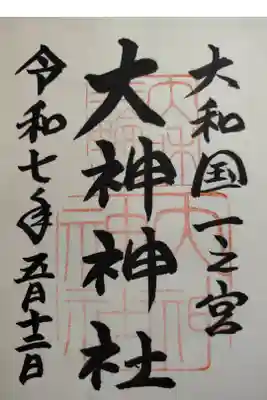 大和国一之宮
大神神社
令和七年五月十二日